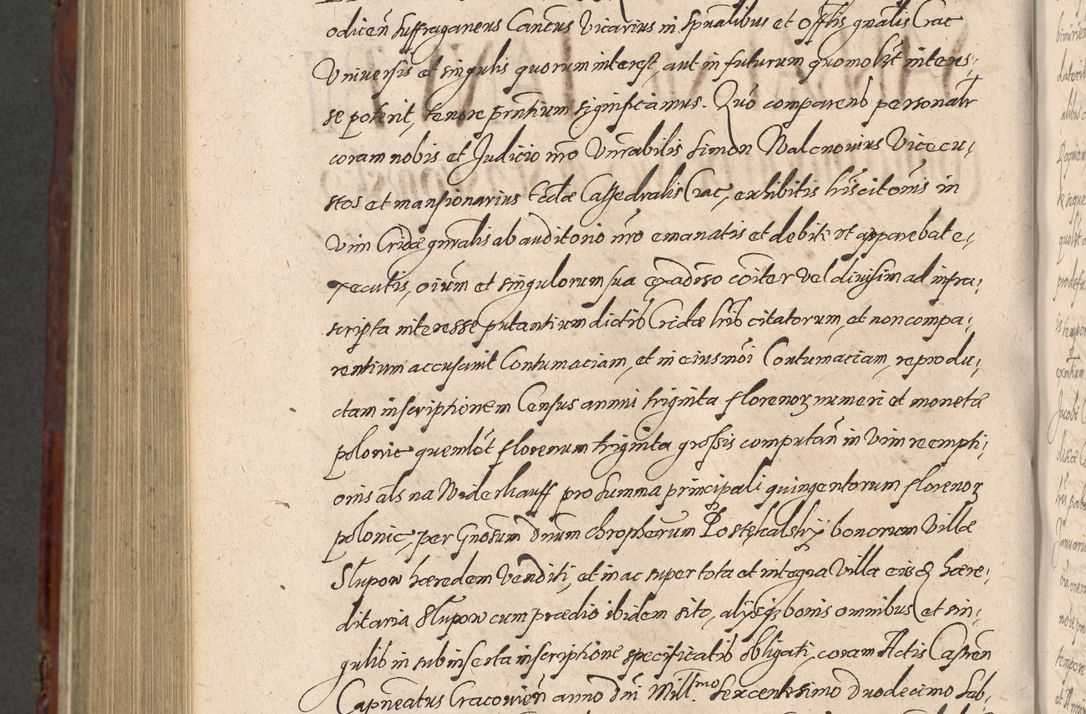 odiceñ suffraganeus Cancus Vicarius in spualibus et offtis gnalis Crac
Vniversis et singulis quorum interest, aut in futurum quomolbt interes,
se poterit, tenore pntium significamus. Quo comparens personalr
coram nobis et Judicio nro Vnrabilis Simon Walcnovius Vicecu,
stos et mansionarius Ecclae Cathedralis Crac, exhibitis lris citonis in
vim Cridae gnralis ab auditorio nro emanatis et debite vt apparebat e,
xecutis, oium et singulorum sua coiter vel divisim ad infra,
scripta interesse putantium dictis Cridae lris citatorum, et non compa,
rentium accusavit Contumaciam, et in eiusmoi Contumaciam, reprodu,
ctam inscriptionem Census annui triginta florenoꝝ numeri et monetae
polonic quemlbt florenum triginta grossis computañ in vim reempti,
onis als na Widerkauff pro summa principali quingentorum florenoꝝ
polonic, per Gnosum Dnum Chropherum bonorum Villae
Słupow haeredem venditi, et in ac super tota et integra Villa eius haere,
ditaria Słupow cum praedio ibidem sito, alijsq bonis omnibus et sin,
gulis in subinserta inscriptione specificatis obligati, coram Actis Castreñ
Capneatus Cracovieñ anno Dni Mill.mo sexcentesimo duodecimo Sab,